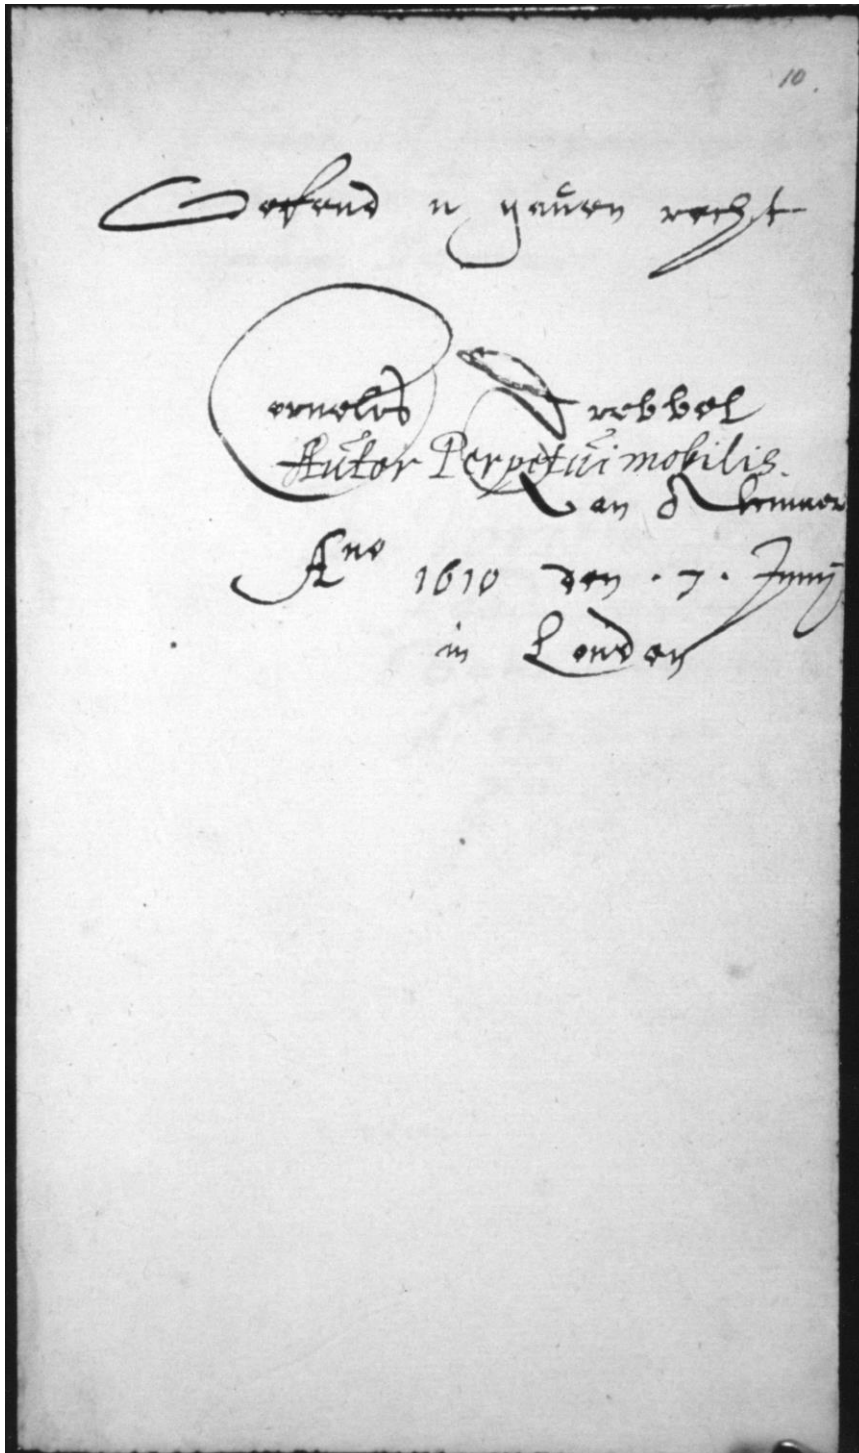 10
Oefend u gaūen recht
Cornelis Drebbel
Aūtor Perpetūi mobilis.
Van Alkmaer
Ano 1610 den · 7 · Junij
in Londen